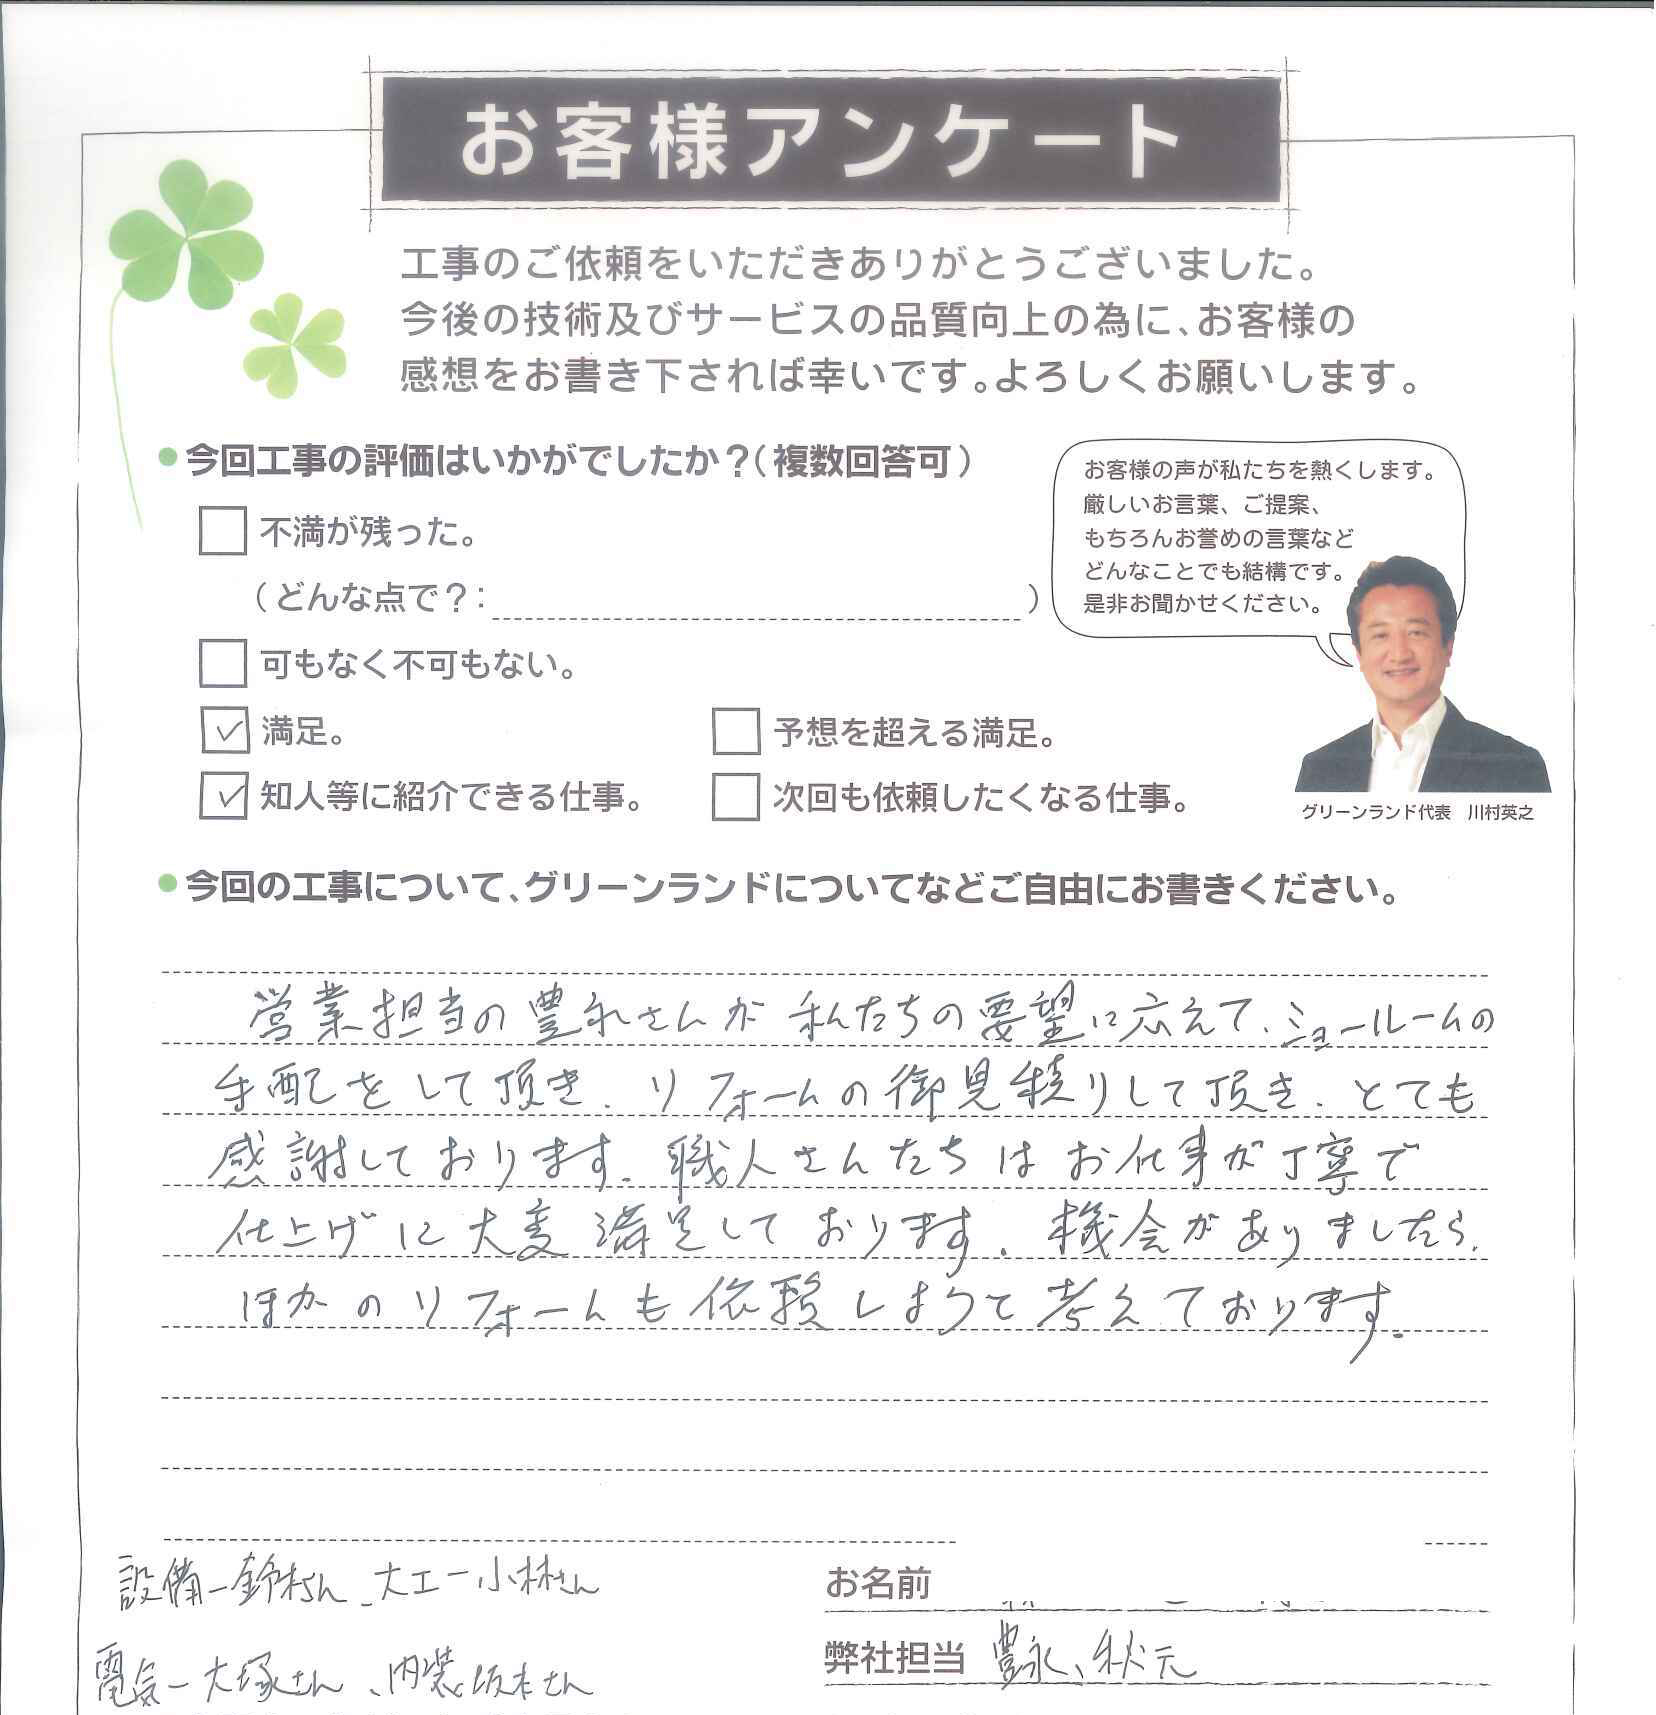 お客様アンケート
工事のご依頼をいただきありがとうございました。
今後の技術及びサービスの品質向上の為に、お客様の
感想をお書き下されば幸いです。よろしくお願いします。
●今回工事の評価はいかがでしたか？（複数回答可）
不満が残った。
（どんな点で？：　）
可もなく不可もない。
満足。
予想を超える満足。
知人等に紹介できる仕事。
次回も依頼したくなる仕事。
お客様の声が私たちを熱くします。
厳しいお言葉、ご提案、
もちろんお誉めの言葉など
どんなことでも結構です。
是非お聞かせください。
グリーンランド代表　川村英之
●今回の工事について、グリーンランドについてなどご自由にお書きください。
営業担当の豊永さんが私たちの要望に応えて、ショールームの
手配をして頂き、リフォームの御見積りして頂き、とても
感謝しております。職人さんたちはお仕事が丁寧で
仕上げに大変満足しております。機会がありましたら、
ほかのリフォームも依頼しようと考えております。
設備ー鈴木さん、大工ー小林さん
電気ー大塚さん、内装坂本さん
お名前
弊社担当 豊永、秋元